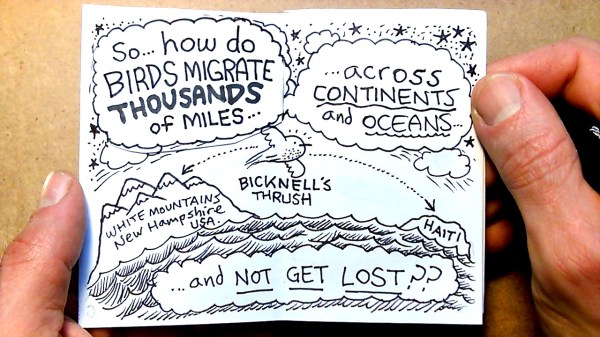 So... how do
BIRDS MIGRATE
THOUSANDS
of MILES...
...across
CONTINENTS
and OCEANS...
BICKNELL'S
THRUSH
WHITE MOUNTAINS
New Hampshire
USA.
HAITI
...and NOT GET LOST??